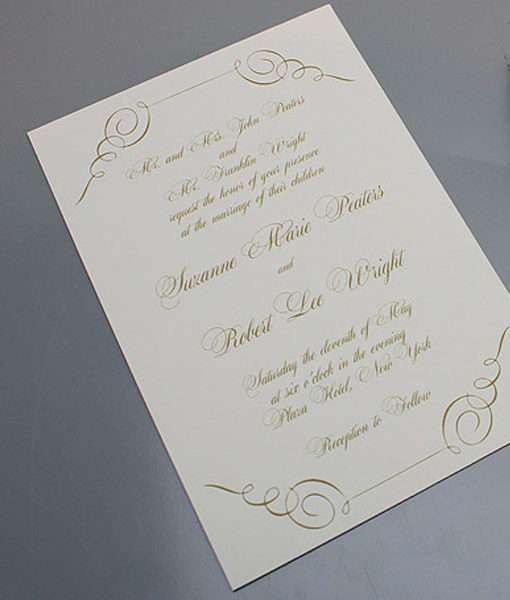 Mr. and Mrs. John Peaters
and
Mr. Franklin Wright
request the honor of your presence
at the marriage of their children
Suzanne Marie Peaters
and
Robert Lee Wright
Saturday the eleventh of May
at six o'clock in the evening
Plaza Hotel, New York
Reception to Follow